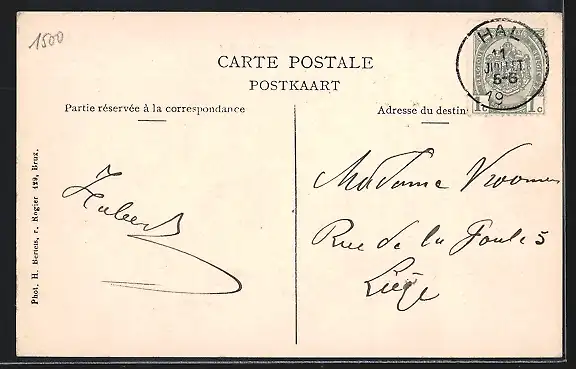 1500
CARTE POSTALE
POSTKAART
Partie réservée à la correspondance
Adresse du destin
HAL
11
JUILLET
5-6
19
1 c 1 c
Phot. H. Bertels, r. Rogier 429, Brux.
Hubert
Madame Vroomen
Rue de la Poule 5
Liège